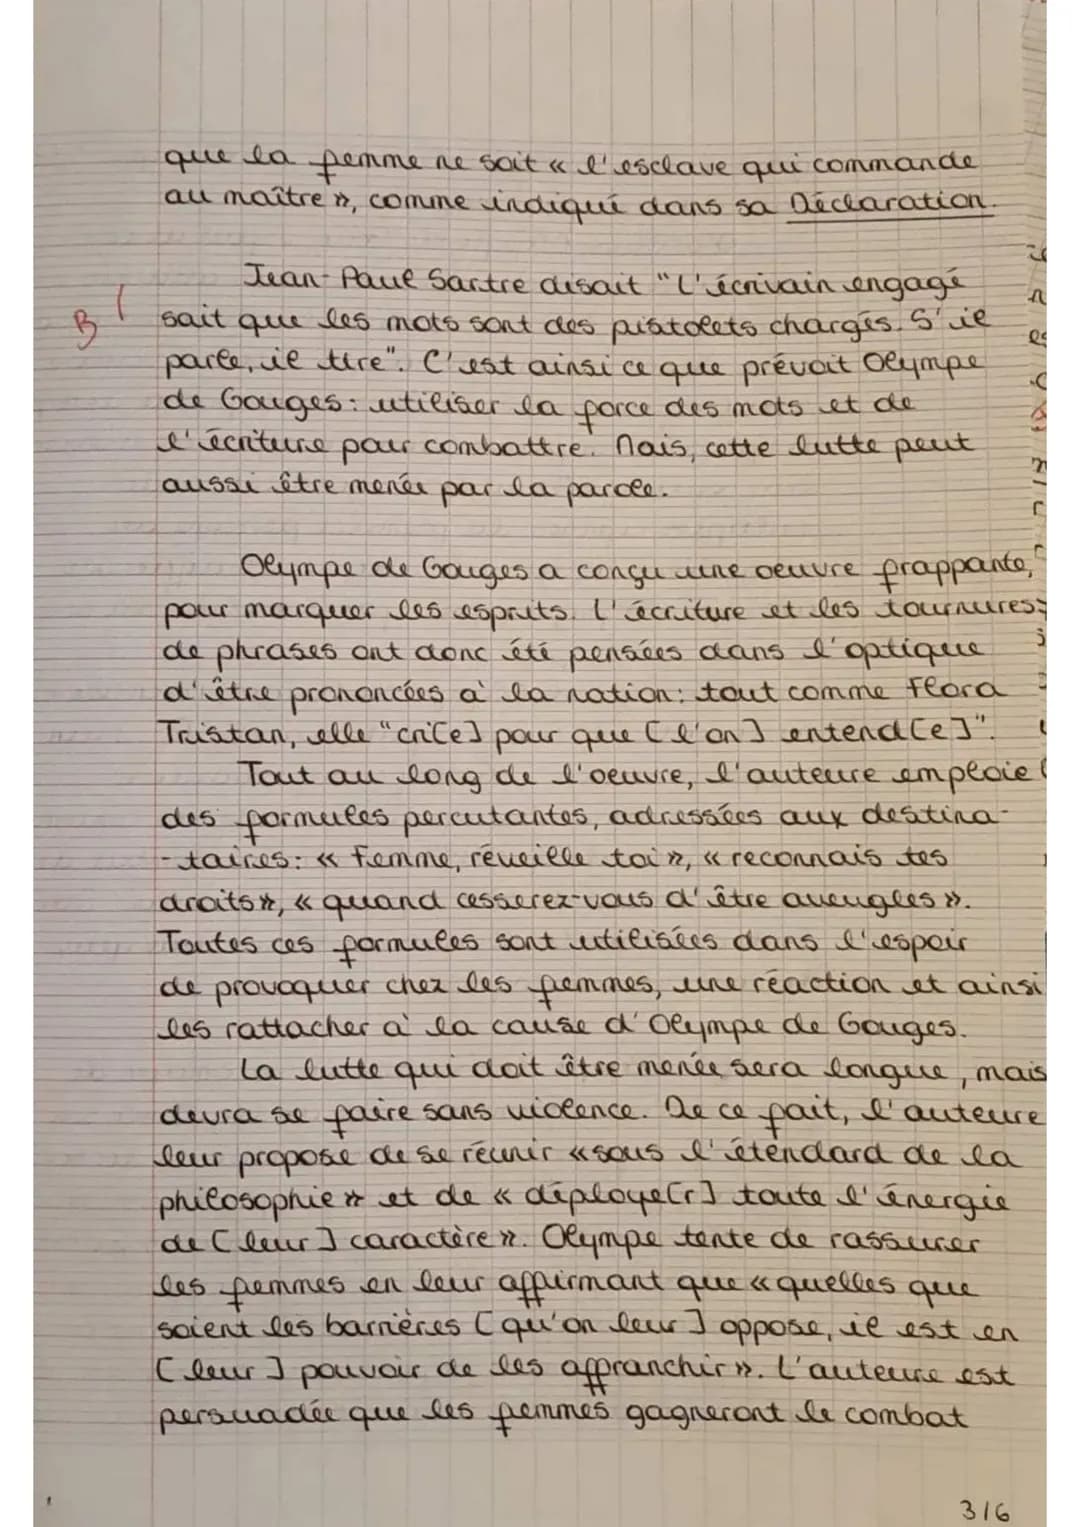 que la femme ne soit « l'esclave qui commande
au maître », comme indiqué dans sa Déclaration.
Jean-Paul Sartre disait "L'écrivain engagé
B
sait que les mots sont des pistolets chargés. S'il
parle, il tire". C'est ainsi ce que prévoit Olympe
de Gouges: utiliser la force des mots et de
l'écriture pour combattre. Mais, cette lutte peut
aussi être menée par la parole.
Olympe de Gouges a conçu une oeuvre frappante,
pour marquer les esprits. L'écriture et les tournures
de phrases ont donc été pensées dans l'optique
d'être prononcées à la nation: tout comme Flora
Tristan, elle "cri[e] pour que [l'on] entend[e]".
Tout au long de l'oeuvre, l'auteure emploie
des formules percutantes, adressées aux destina-
-taires: « Femme, réveille toi », « reconnais tes
droits », « quand cesserez-vous d'être aveugles ».
Toutes ces formules sont utilisées dans l'espoir
de provoquer chez les femmes, une réaction et ainsi
les rattacher à la cause d'Olympe de Gouges.
La lutte qui doit être menée sera longue, mais
devra se faire sans violence. De ce fait, l'auteure
leur propose de se réunir « sous l'étendard de la
philosophie » et de « déploye[r] toute l'énergie
de [leur] caractère ». Olympe tente de rassurer
les femmes en leur affirmant que « quelles que
soient les barrières [qu'on leur] oppose, il est en
[leur] pouvoir de les affranchir ». L'auteure est
persuadée que les femmes gagneront le combat
3/6